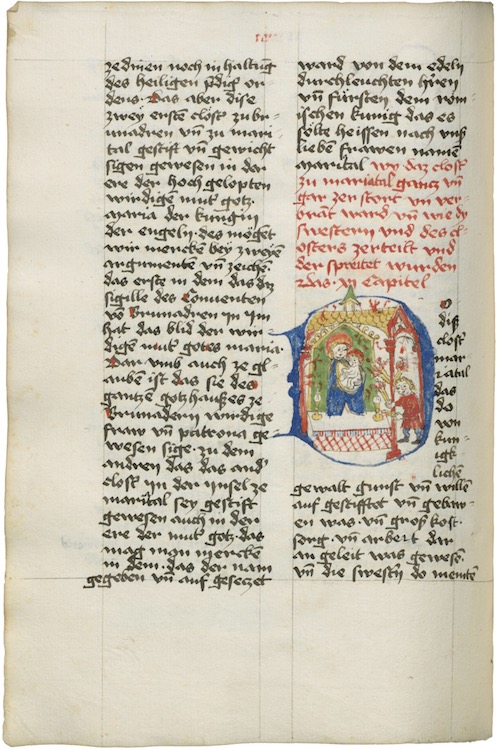 zedinen noch in haltug
des heiligen p̄dig᷑ or¬
dens. Das aber dise
zwey ersten clost᷑ zu br¬
unadren vn̄ zu mari
tal gestift vn̄ gewicht
sigen gewesen in der
ere der hoch gelopten
wirdige mut᷑ gotz.
maria der kungin
der engeln. des möget
wir mercken bey zweyen
argumente vn̄ zeichen.
das erste in dem das dz
sigille des Conuenten
vō Brunadren in im
hat das bild der wir¬
digen mut᷑ gotes maria.
Dar vmb auch ze gl¬
auben ist das sie des
gantzen gotzhauses ze
Brunadern wirdige
fraw vn̄ patrona ge
wesen sige. zu dem
andren das das and᷑
clost᷑ in der jnsel ze
marital sey gestift
gewesen auch in der
ere der mut᷑ gotz. das
mag man mercken
in dem. das der nam
gegeben vn̄ auf gesetzet
ward von dem edeln
durchleuchten h᷑ren
vn̄ fürsten dem röm
ischen kunig das es
sölte heissen nach vns᷑
lieben frawen namē
marital wy daz clost᷑
zu mariatal gantz vn̄
gar zerstört vn̄ ver¬
brāt ward vn̄ wie dy
swestern vnd des cl¬
osters zerteilt vnd
der spreitet wurden
das xi capitel
Do
diß
clost᷑
mar
iatal
das
do
von
kun¬
igk¬
lichen
gewalt gunst vn̄ willen
auf gestifftet vn̄ gebaw¬
en was. vn̄ groß kost.
sorg. vn̄ arbeit dar
an geleit was gewesē.
vn̄ die swest᷑n do meintē